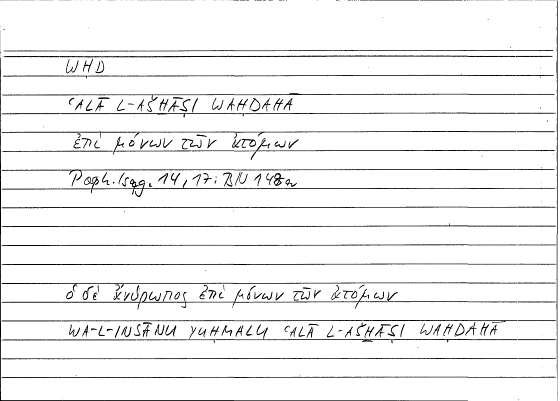 WḤD
ʿALĀ L-AŠḪĀṢI WAḤDAHĀ
ἐπὶ μόνων τῶν ἀτόμων
Poph. Isag. 14, 17: BN 148a
ὁ δὲ ἄνθρωπος ἐπὶ μόνων τῶν ἀτόμων
WA-L-INSĀNU YUḤMALU ʿALĀ L-AŠḪĀṢI WAḤDAHĀ